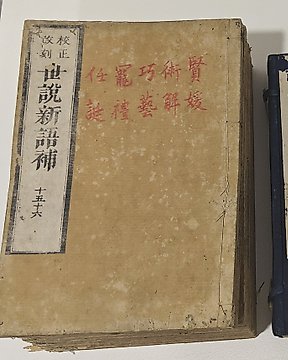 賢媛
術解
巧藝
寵禮
任誕
校正
改刻
世說新語補
十五十六